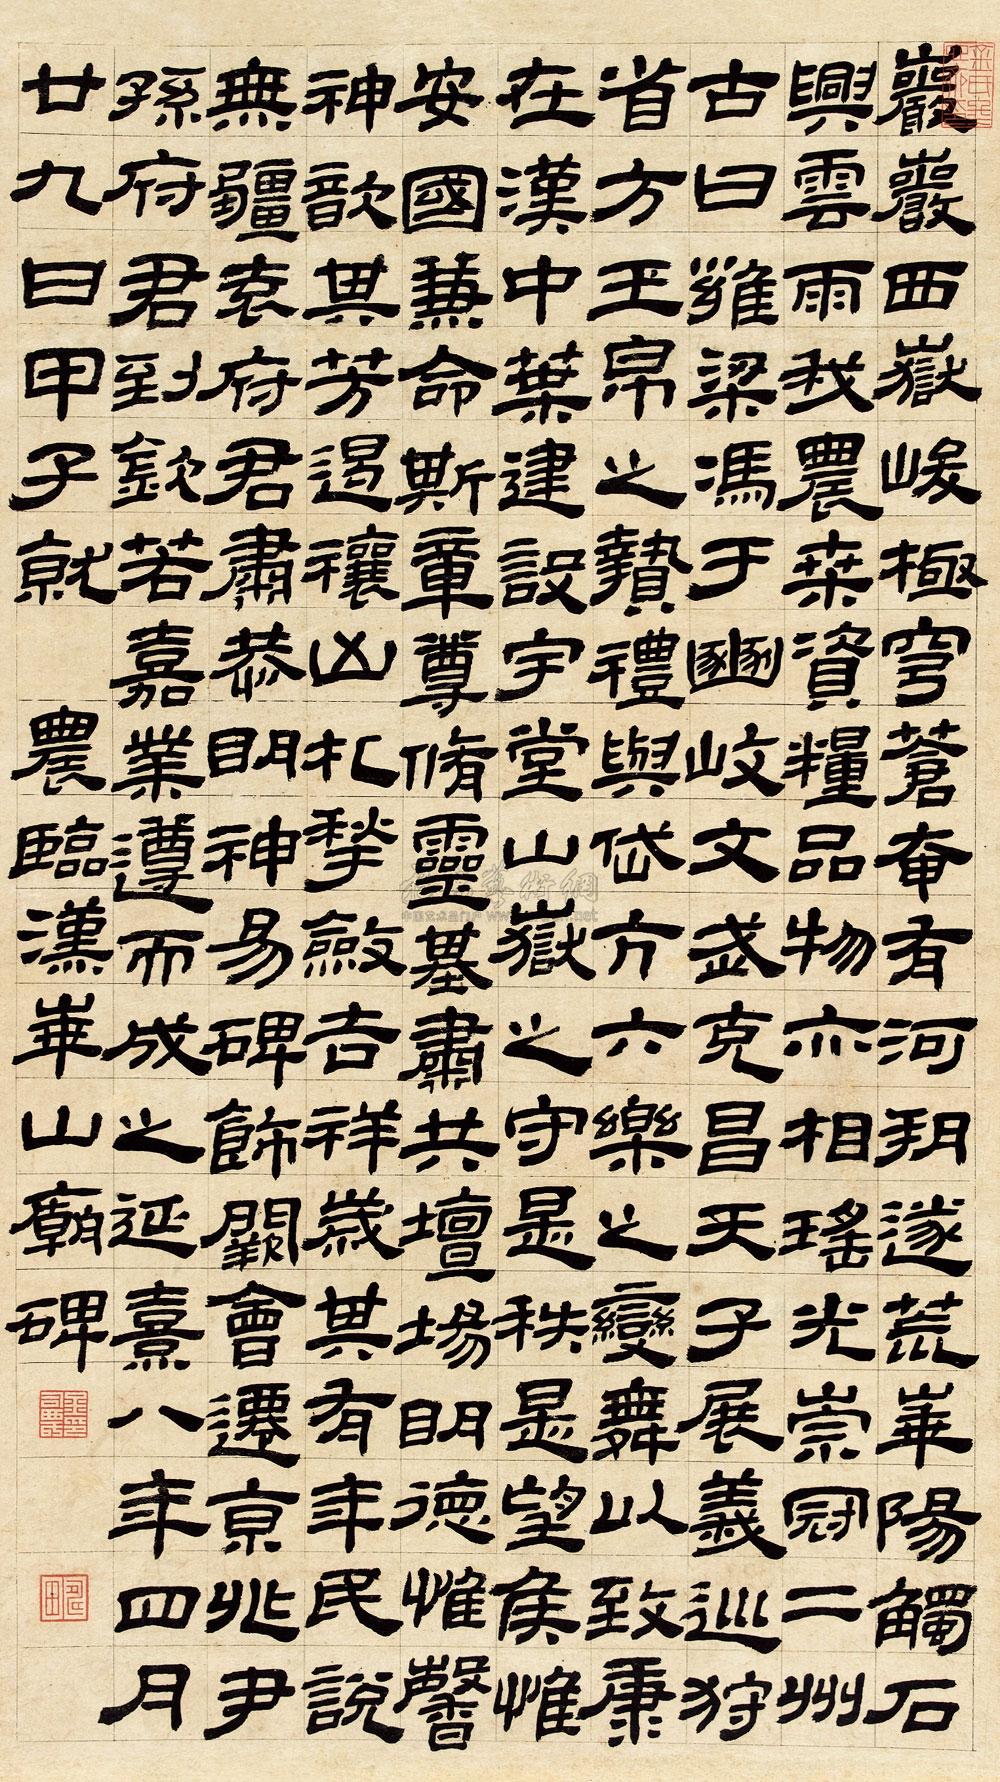 巖巖西嶽峻極穹蒼奄有河朔遂荒崋陽觸石
興雲雨我農桒資糧品物亦相瑤光崇冠二州
古曰雍梁馮于豳岐文武克昌天子展義巡狩
省方玉帛之贄禮與岱亢六樂之變舞以致康
在漢中葉建設宇堂山嶽之守是秩是望侯惟
安國兼命斯章尊脩靈基肅共壇場明德惟馨
神歆其芳遏禳凶札揫斂吉祥歲其有年民說
無疆袁府君肅恭明神易碑飾闕會遷京兆尹
孫府君到欽若嘉業遵而成之延熹八年四月
廿九日甲子就 農臨漢崋山廟碑